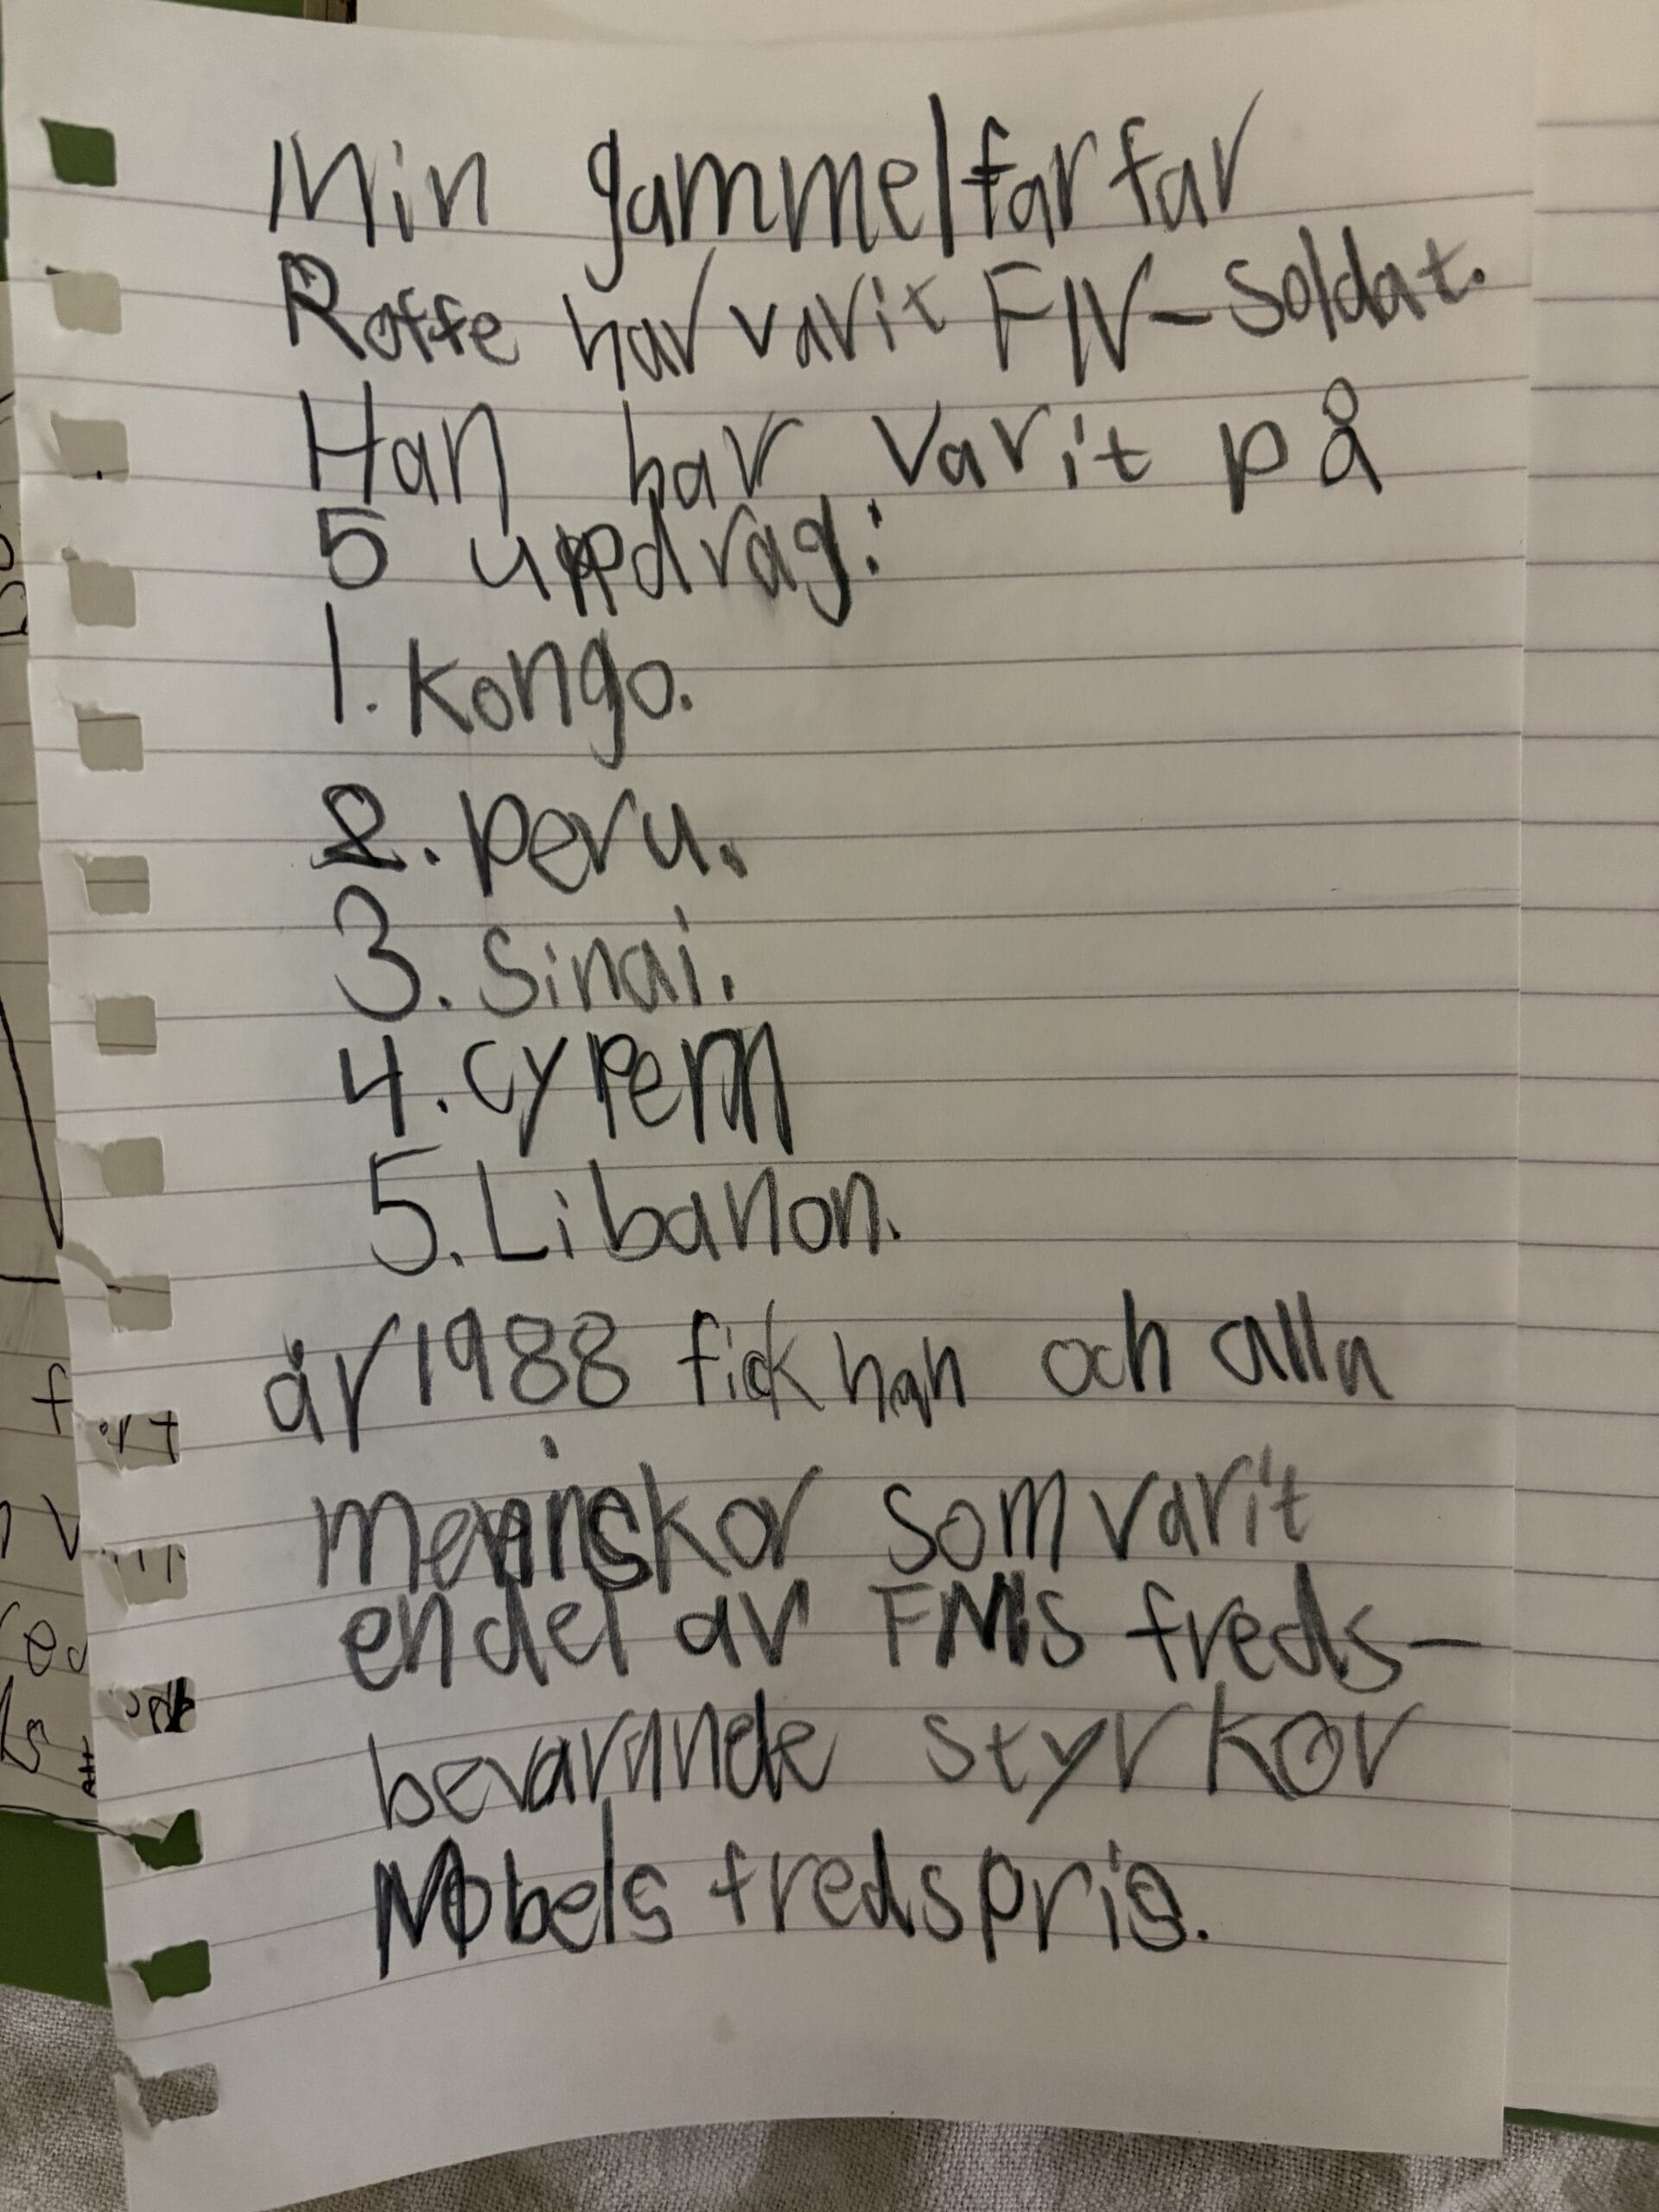 Min gammelfarfar
Roffe har varit FN-soldat.
Han har varit på
5 uppdrag:
1. Kongo.
2. peru.
3. Sinai.
4. cypern
5. Libanon.
år 1988 fick han och alla
meniskor som varit
endel av FNs freds-
bevarande styrkor
Nobels fredspris.